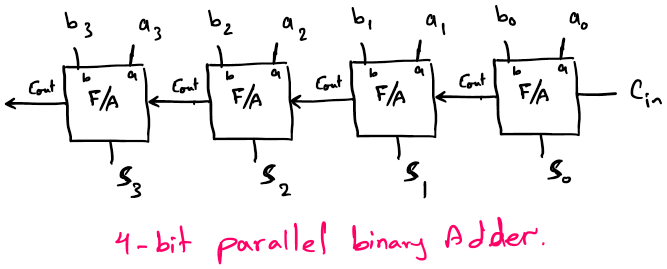 b3 a3 b2 a2 b1 a1 b0 a0
b a b a b a b a
Cout F/A Cout F/A Cout F/A Cout F/A Cin
S3 S2 S1 S0
4-bit parallel binary Adder.